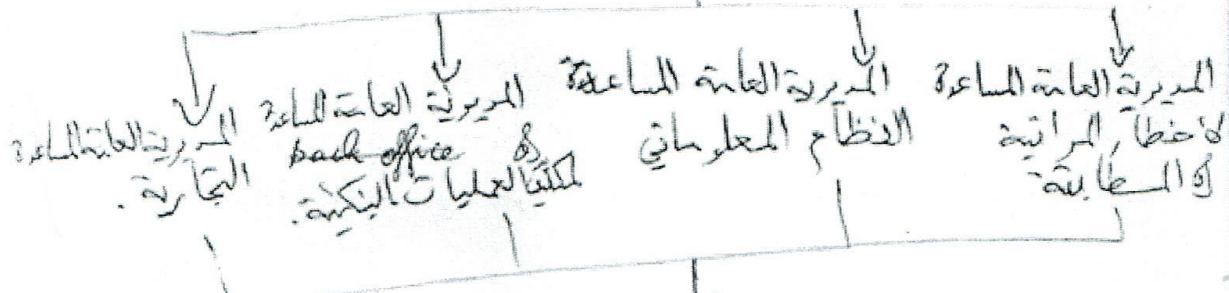 المديرية العامة المساعدة
لأخطار المراقبة
و المطابقة
المديرية العامة المساعدة
النظام المعلوماتي
المديرية العامة المساعدة
back office و
لمكلفة العمليات البنكية.
المديرية العامة المساعدة
التجارية.